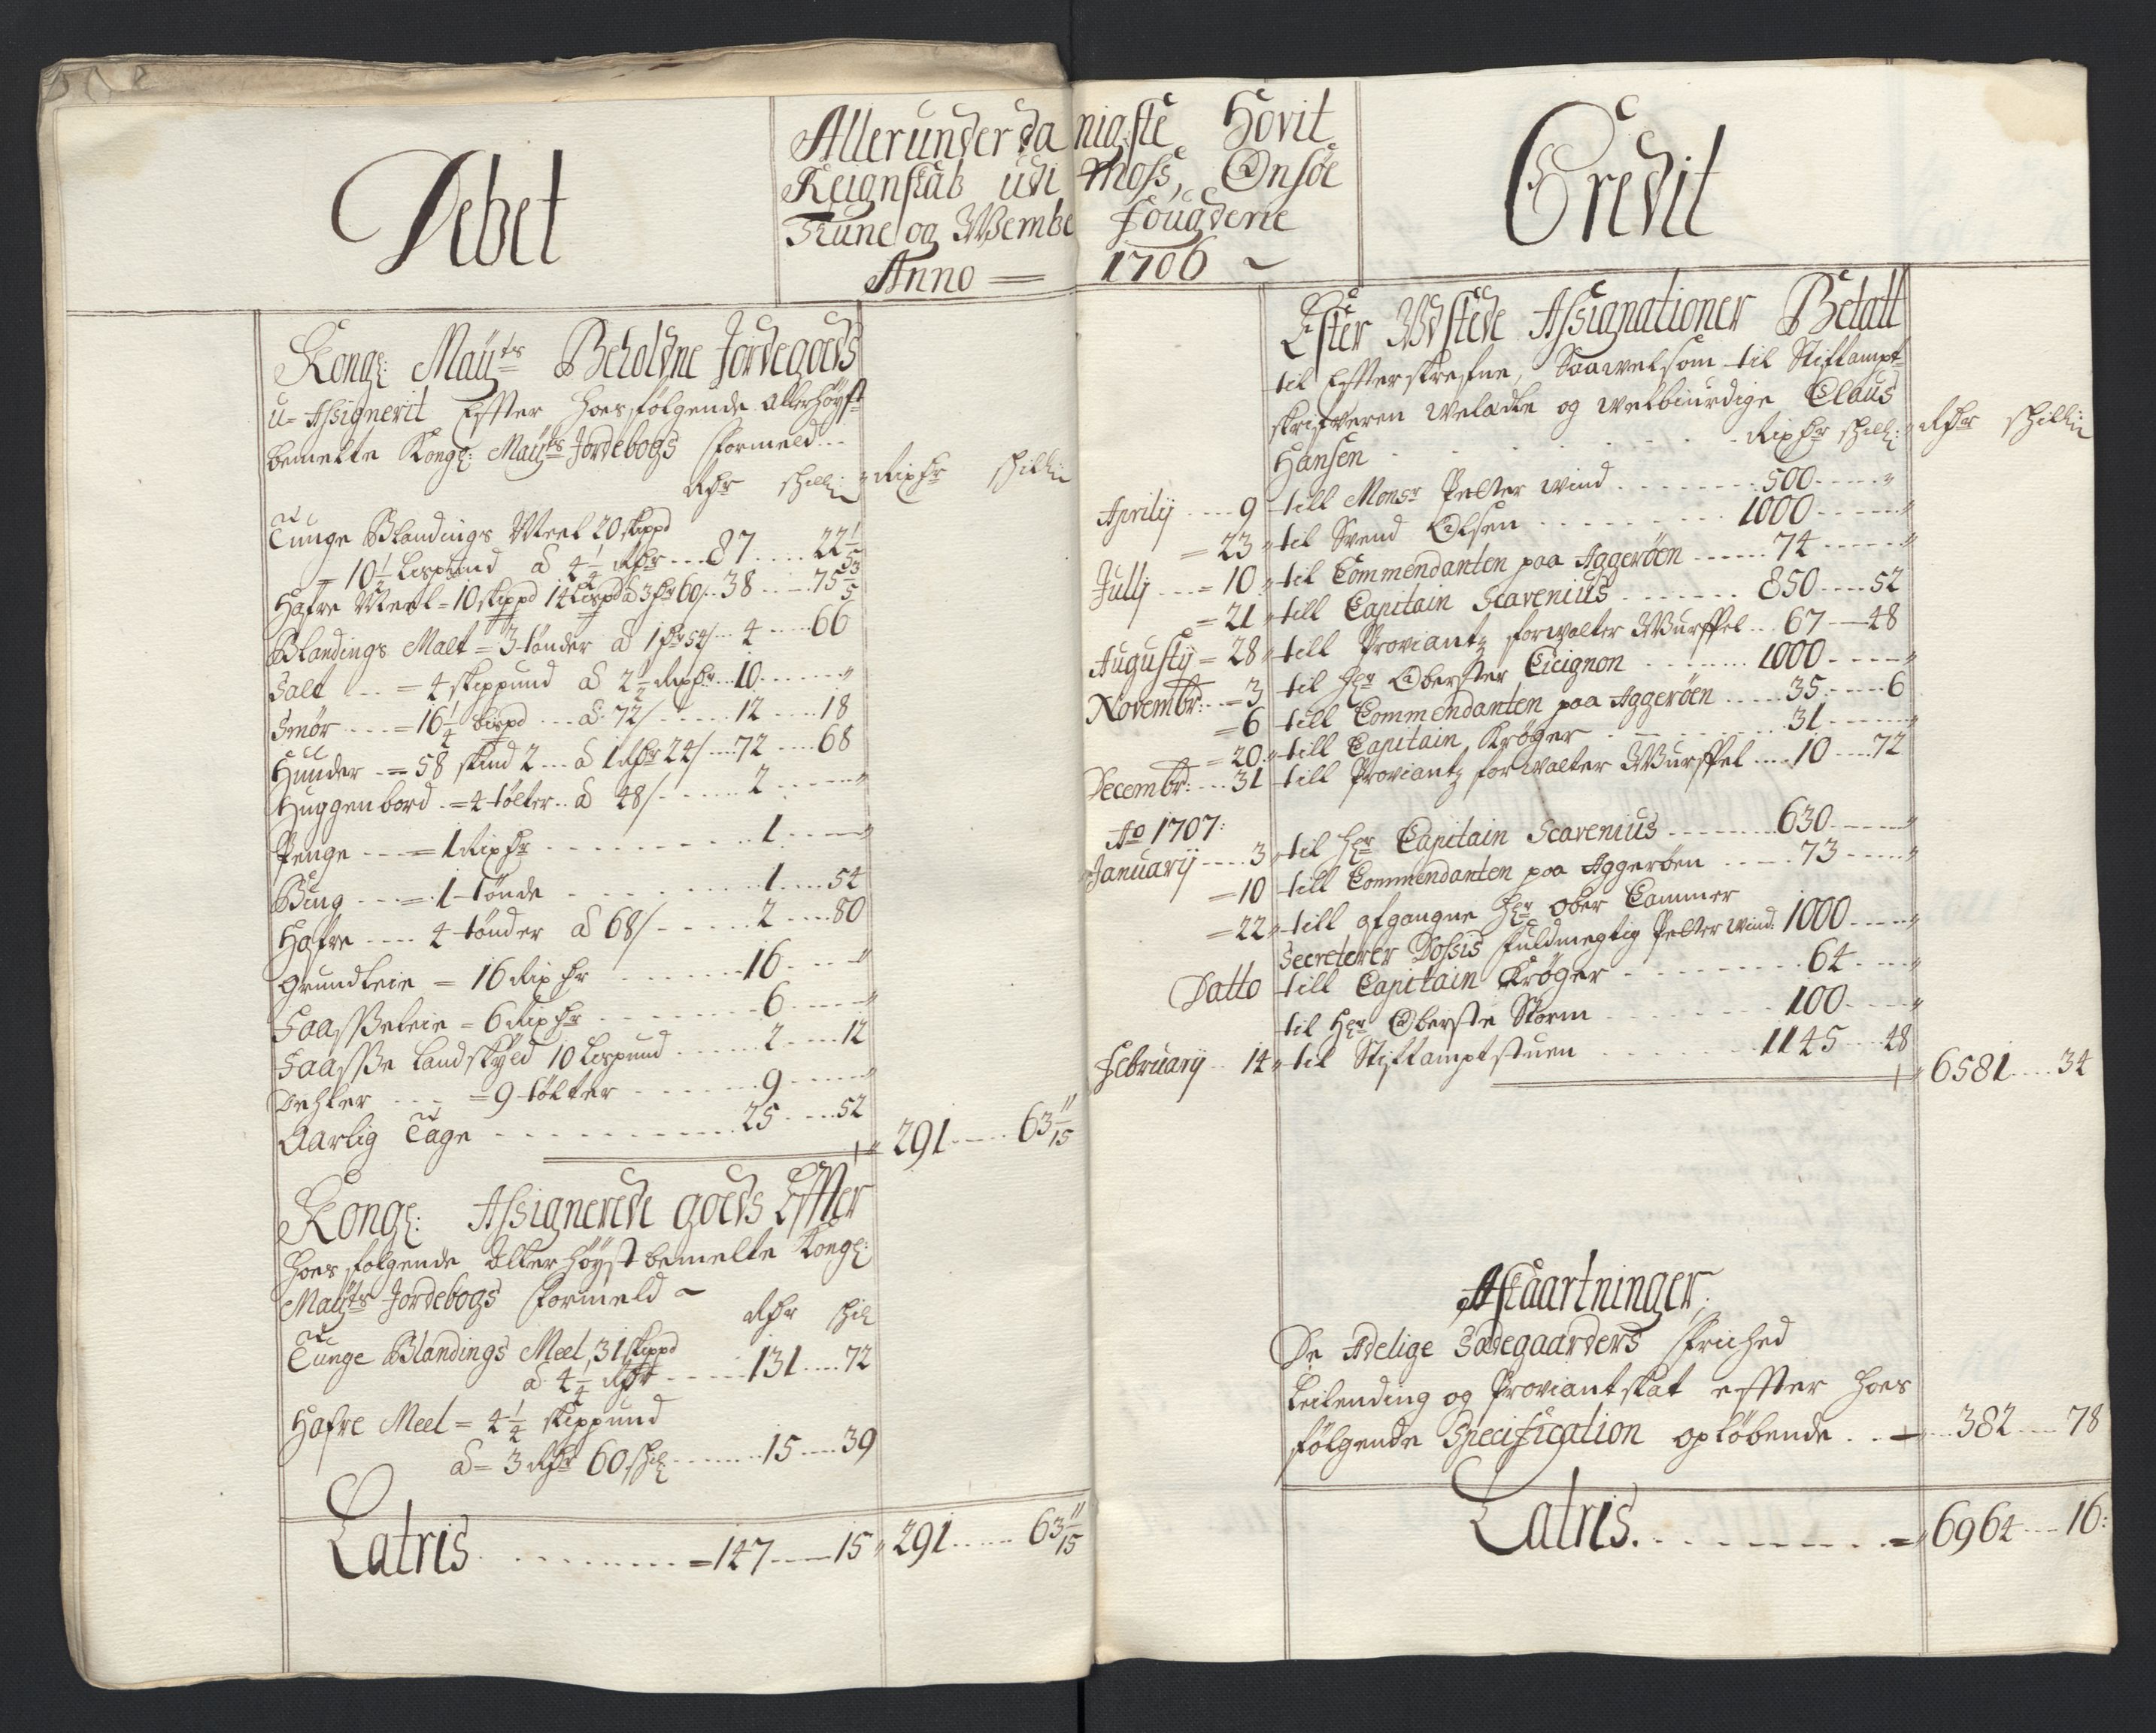 Debet
Allerunderdanigste Hovit
Reignskab udi Moss, Onsöe
Tune og Wembe Fougderie
Anno = 1706
Credit
Kongl: Mayts Beholdne Jordegoeds
u-Assignerit Effter hoesfølgende allerhöyst
bemelte Kongl: Mayts Jordebogs formeld..
Rdr skill: Rixdr skill:
Tunge Blandings Meel 20 skippd
= 10 1/2 Lispund à 4 1/4 Rdr ... 87 .... 22 1/5
Hafre Meel = 10 skippd 14 Lispd à 3 dr 60/ .. 38 .... 75 3/5
Blandings Malt = 3 tönder à 1 dr 54/ ... 4 .... 66
Salt ... = 4 skippund à 2 1/2 Rixdr ... 10 .... "
Smör .... = 16 1/4 bispd ... à 72/ .... 12 .... 18
Hunder .. = 58 skind 2 ... à 1 Rdr 24/ ... 72 .... 68
Huggenbord . = 4 tölter .. à 48/ .... 2 .... "
Penge .... = 1 Rixdr .... 1 .... "
Biug .... = 1 tönde .... 1 .... 54
Hafre .... 4 tönder à 68/ .... 2 .... 80
Grundleie = 16 Rixdr .... 16 .... "
Saugeleie = 6 Rixdr .... 6 .... "
Landskyld 10 Lispund .... 2 .... 12
Dehler .... = 9 tölter .... 9 .... "
Aarlig Tage .... 25 .... 52
291 .... 63 11/15
Kongl: Assignerede goeds Effter
hoesfølgende Allerhöyst bemelte Kongl:
Mayts Jordebogs formeld
Rdr skil
Tunge Blandings Meel, 31 skippd
à 4 1/4 Rdr .... 131 .... 72
Hafre Meel = 4 1/4 skippund
à = 3 Rdr 60 skil .... 15 .... 39
Latris .... = 147 .... 15 " 291 .... 63 11/15
Efter Udstede Assignationer Betalt
til Effterskrefne, Saavelsom til Stiftampt
skrifveren Welædle og welbiurdige Claus
Hansen .... Rixdr skill: Rdr skill:
Aprilij .... 9 till Monsr Petter wind .... 500 .... "
= 23 " til Svend Olsen .... 1000 .... "
Julij .... = 10 " til Commendanten paa Aggeröen .... 74 .... "
= 21 " till Capitain Scavenius .... 850 .... 52
Augustij = 28 " till Proviantz forwalter Wurffel .. 67 .... 48
Novembr: .. = 3 til Hr Oberster Cicignon .... 1000 .... "
= 6 " till Commendanten paa Aggeröen .... 35 .... 6
= 20 " till Capitain Kröger .... 31 .... "
Decembr: ... 31 till Proviantz forwalter Wurffel .... 10 .... 72
Ao 1707:
Januarij .... 3 " til Hr Capitain Scavenius .... 630 .... "
= 10 till Commendanten poa Aggeröen .... 73 .... "
= 22 " till afgangne Hr ober Cammer
Secreterer Dossis fuldmegtig Petter wind: 1000 .... "
Datto till Capitain Kröger .... 64 .... "
til Hr Oberste Storm .... 100 .... "
Februarij .. 14 " til Stiftamptstuen .... 1145 .... 48
6581 .... 34
Afkaartninger
De Adelige Sædegaarders friehed
Leilending og Proviantskat effter hoes
følgende Specification oplöbende .. 382 .... 78
Latris. .... = 6964 .... 16: